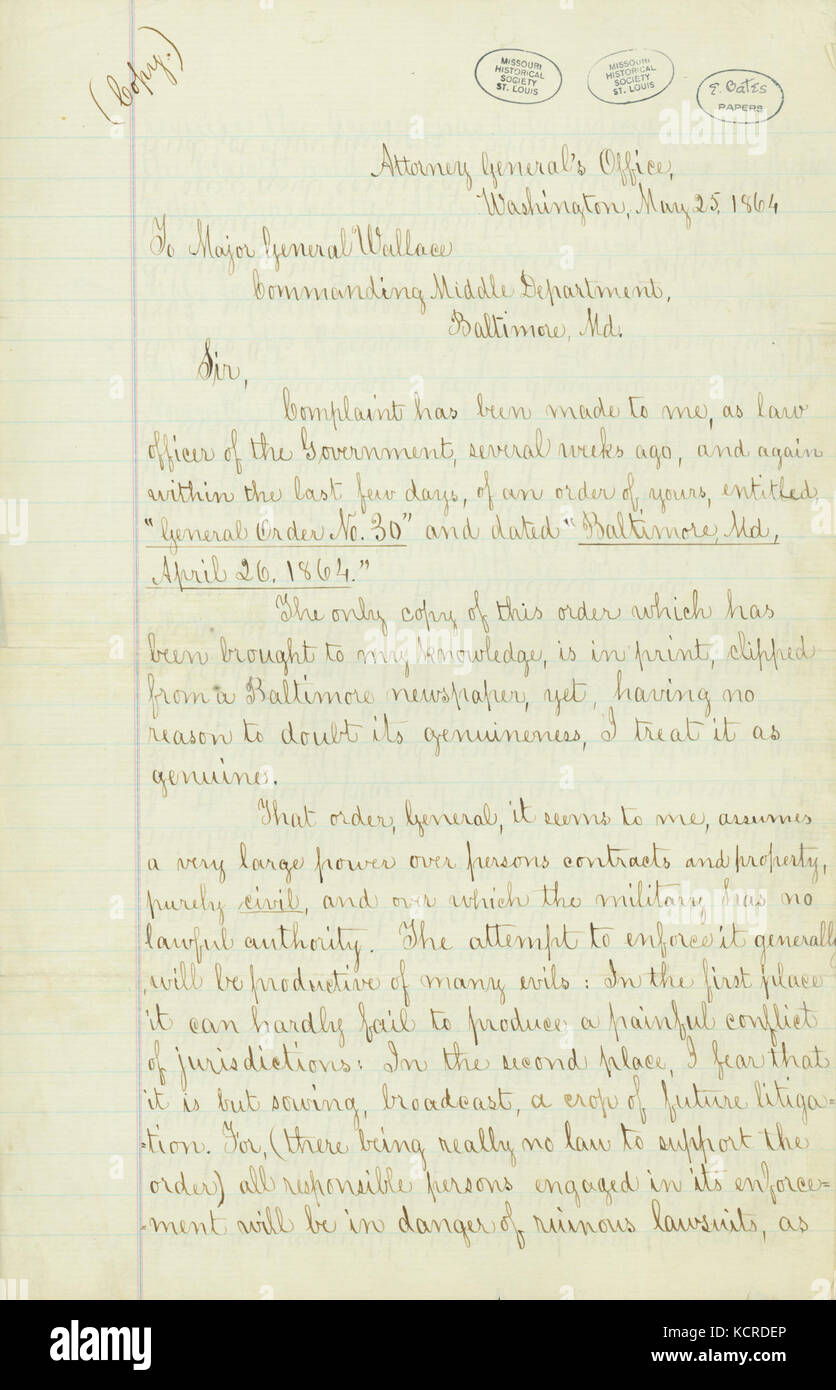 (Copy.)
MISSOURI
HISTORICAL
SOCIETY
ST. LOUIS
MISSOURI
HISTORICAL
SOCIETY
ST. LOUIS
E. Bates
PAPERS
Attorney General's Office,
Washington, May 25, 1864
To Major General Wallace
Commanding Middle Department,
Baltimore, Md.
Sir,
Complaint has been made to me, as law
officer of the Government, several weeks ago, and again
within the last few days, of an order of yours, entitled
"General Order No. 30" and dated "Baltimore, Md,
April 26. 1864."
The only copy of this order which has
been brought to my knowledge, is in print, clipped
from a Baltimore newspaper, yet, having no
reason to doubt its genuineness, I treat it as
genuine.
That order, General, it seems to me, assumes
a very large power over persons contracts and property,
purely civil, and over which the military has no
lawful authority. The attempt to enforce it generally
will be productive of many evils: In the first place
it can hardly fail to produce a painful conflict
of jurisdictions: In the second place, I fear that
it is but sowing, broadcast, a crop of future litiga=
=tion. For, (there being really no law to support the
order) all responsible persons engaged in its enforce=
=ment will be in danger of ruinous lawsuits, as
alamy
Image ID: KCRDEP
www.alamy.com